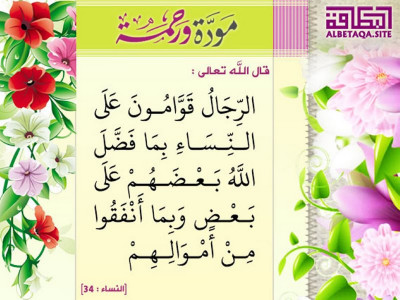 مودة ورحمة
البطاقة
ALBETAQA.SITE
قال الله تعالى :
الرِّجَالُ قَوَّامُونَ عَلَى
النِّسَاءِ بِمَا فَضَّلَ
اللَّهُ بَعْضَهُمْ عَلَى
بَعْضٍ وَبِمَا أَنْفَقُوا
مِنْ أَمْوَالِهِمْ
[النساء : 34]